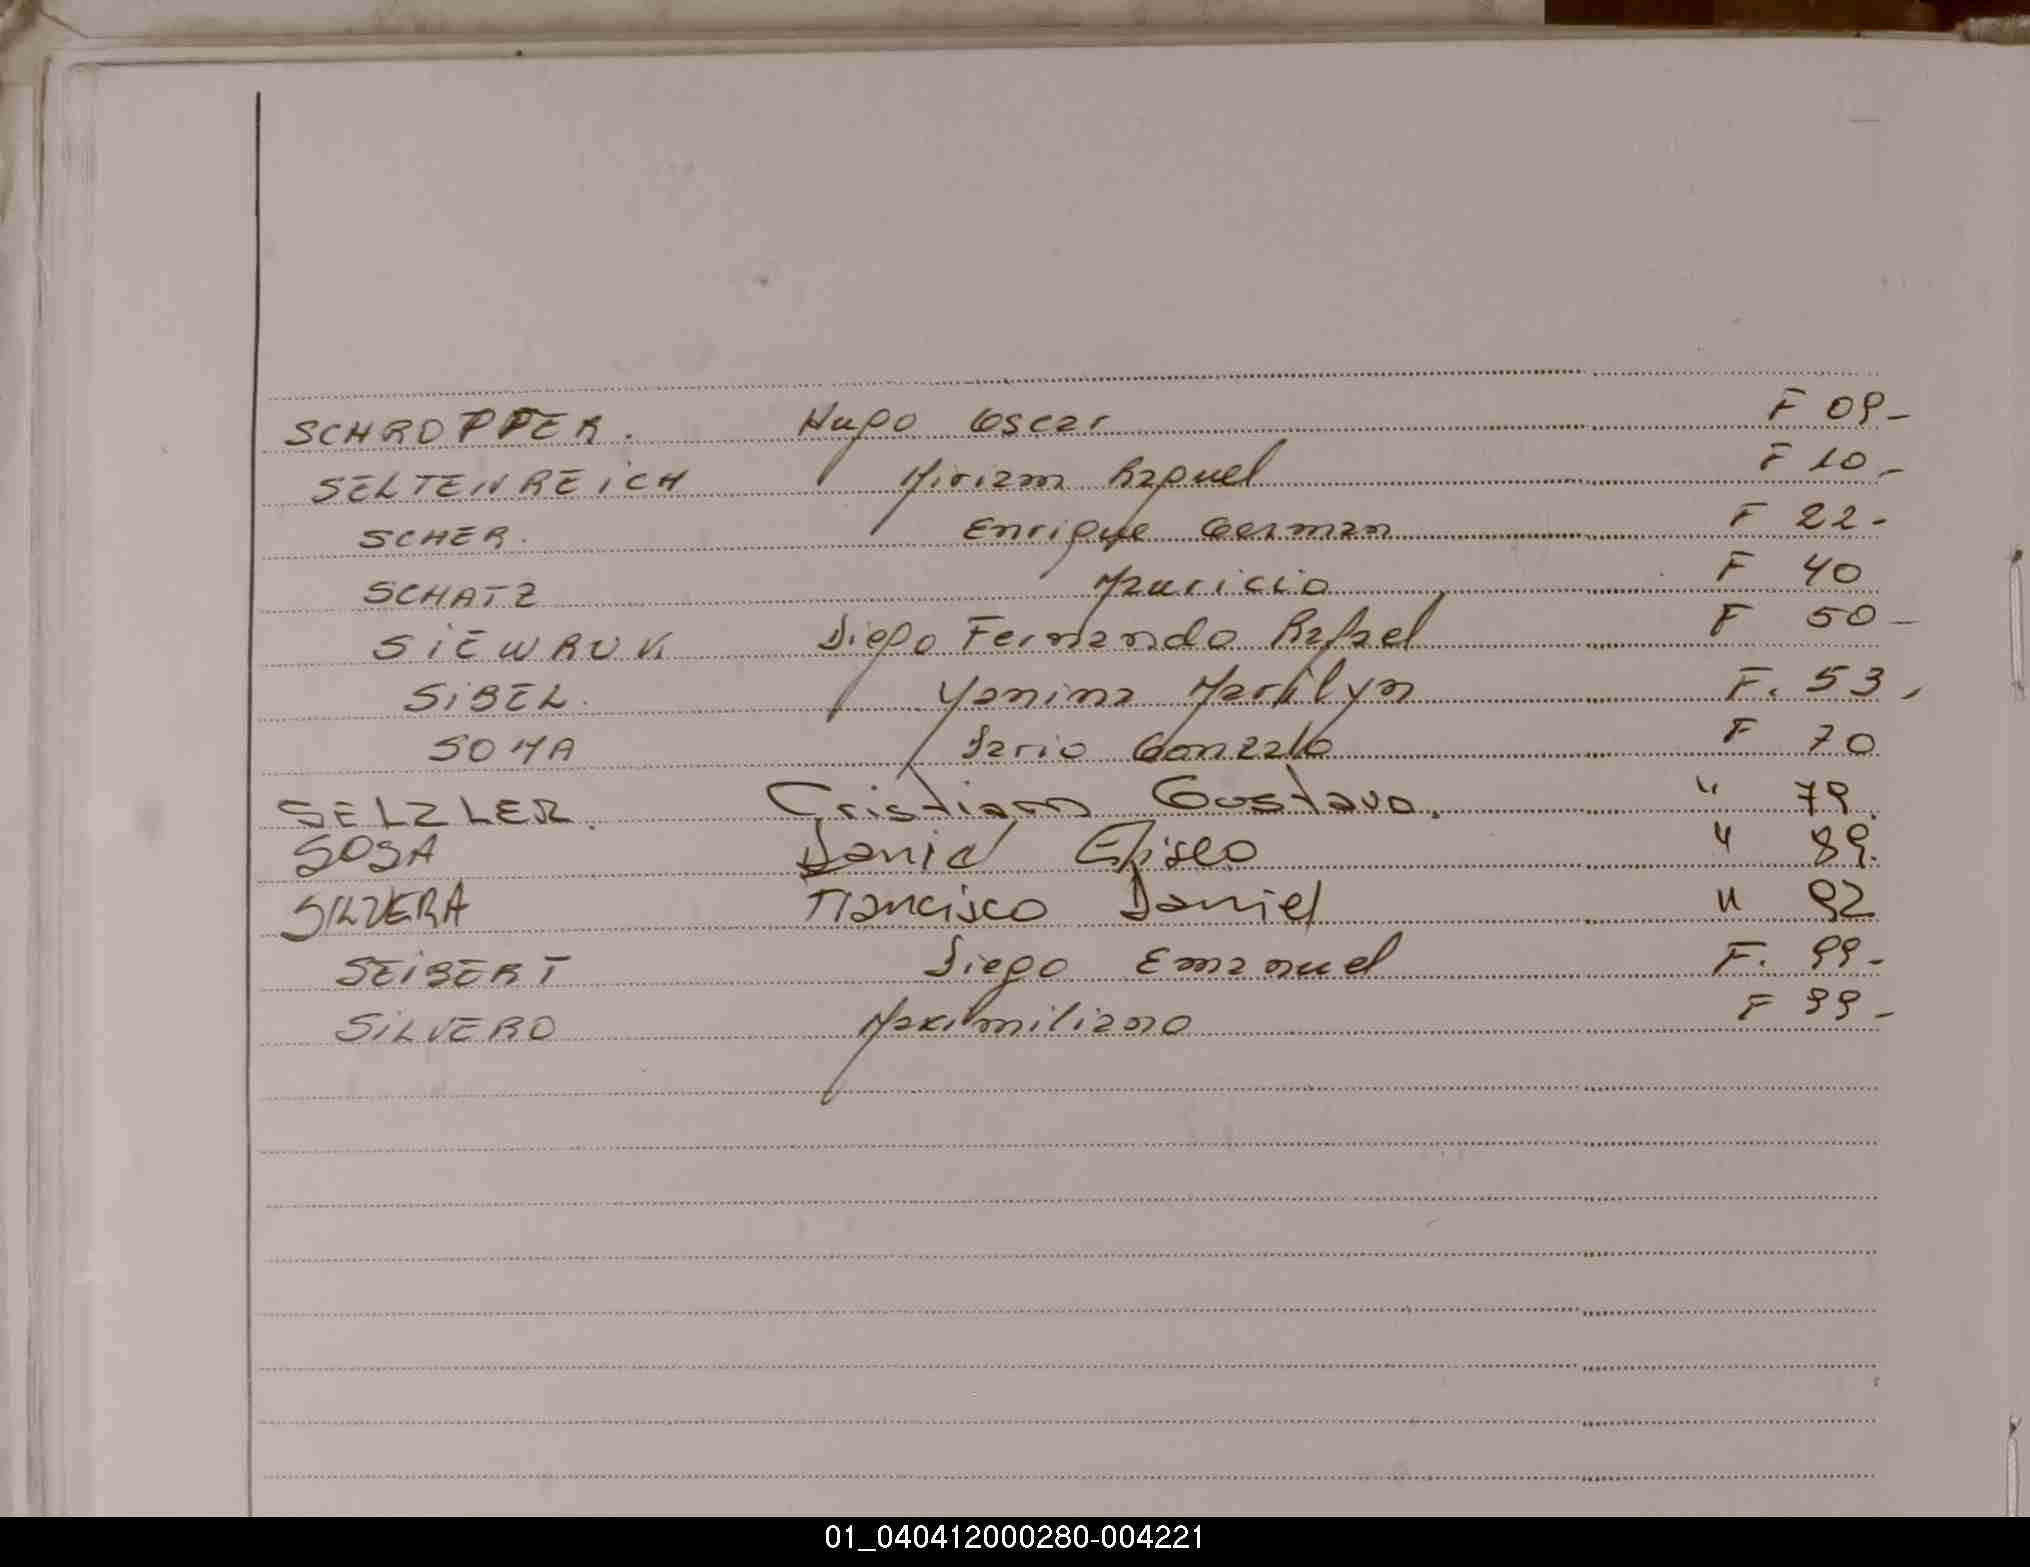 SCHROPFER. Hugo Oscar F 09-
SELTENREICH Miriam Raquel F 10-
SCHER. Enrique German F 22-
SCHATZ Mauricio F 40
SiEWRUK Diego Fernando Rafael F 50-
SiBEL. Yanina Marilyn F. 53-
SOMA Dario Gonzalo F 70
SELZLER. Cristiam Gustavo. " 79
SOSA Daniel Eliseo " 89.
SILVERA Francisco Daniel " 92
SEiBERT Diego Emanuel F. 99-
SiLVERO Maximiliano F 99-
01_040412000280-004221